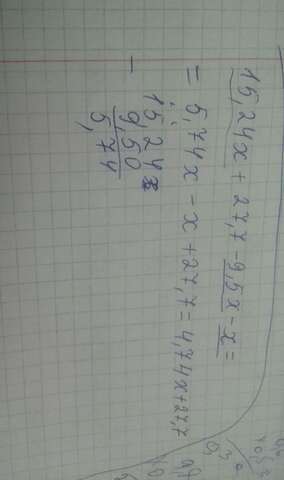 15,24x + 27,7 - 9,5x - x =
= 5,74x - x + 27,7 = 4,74x + 27,7
- 15,24
9,50
5,74